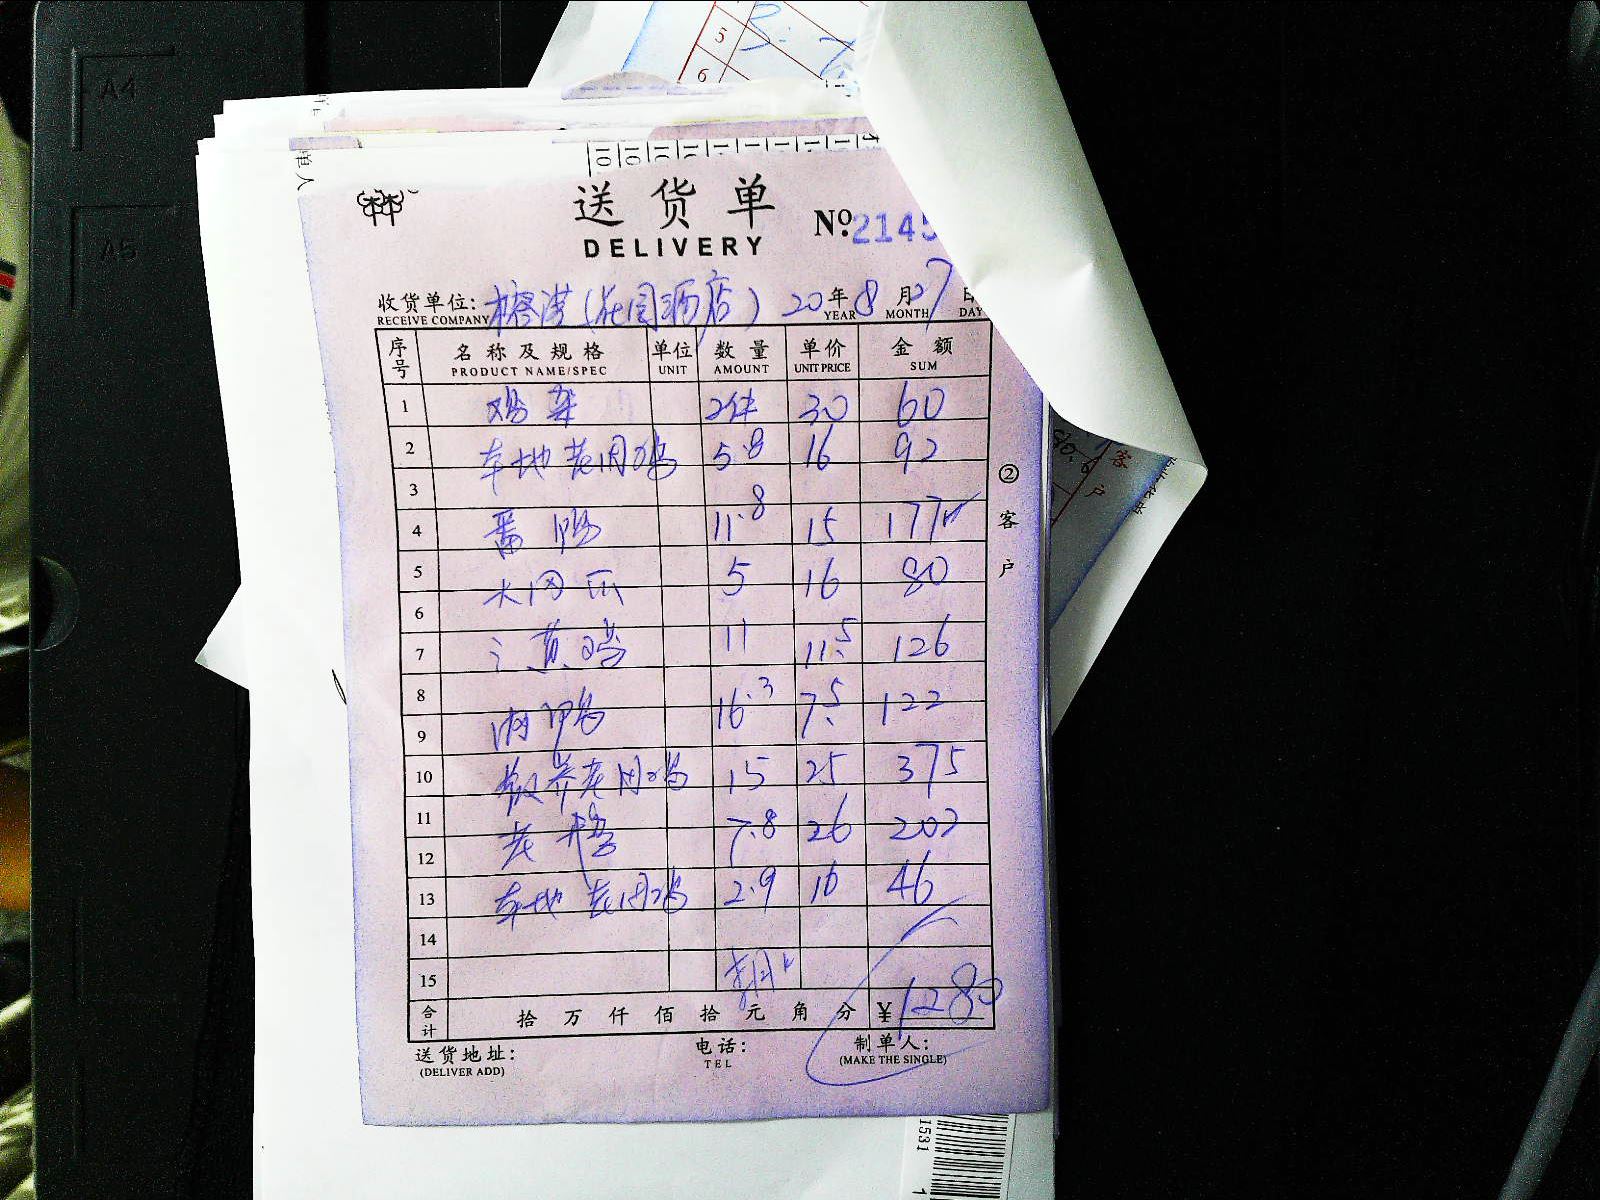 A4
A5
5
6
送货单
DELIVERY
№ 2145
收货单位: (花园酒店) 20年8月27日
RECEIVE COMPANY YEAR MONTH DAY
序号 名称及规格 单位 数量 单价 金额
PRODUCT NAME/SPEC UNIT AMOUNT UNIT PRICE SUM
1 鸡架 2件 30 60
2 本地老肉鸡 5.8 16 92
3
4 番鸭 11.8 15 177
5 5 16 80
6
7 黄鸡 11 11.5 126
8 16.3 7.5 122
9
10 放养老肉鸡 15 25 375
11 老鹅 7.8 26 202
12
13 本地老肉鸡 2.9 16 46
14
15
合计 拾万仟佰拾元角分 ¥1280
送货地址: 电话: 制单人:
(DELIVER ADD) TEL (MAKE THE SINGLE)
②客户
客户
1531